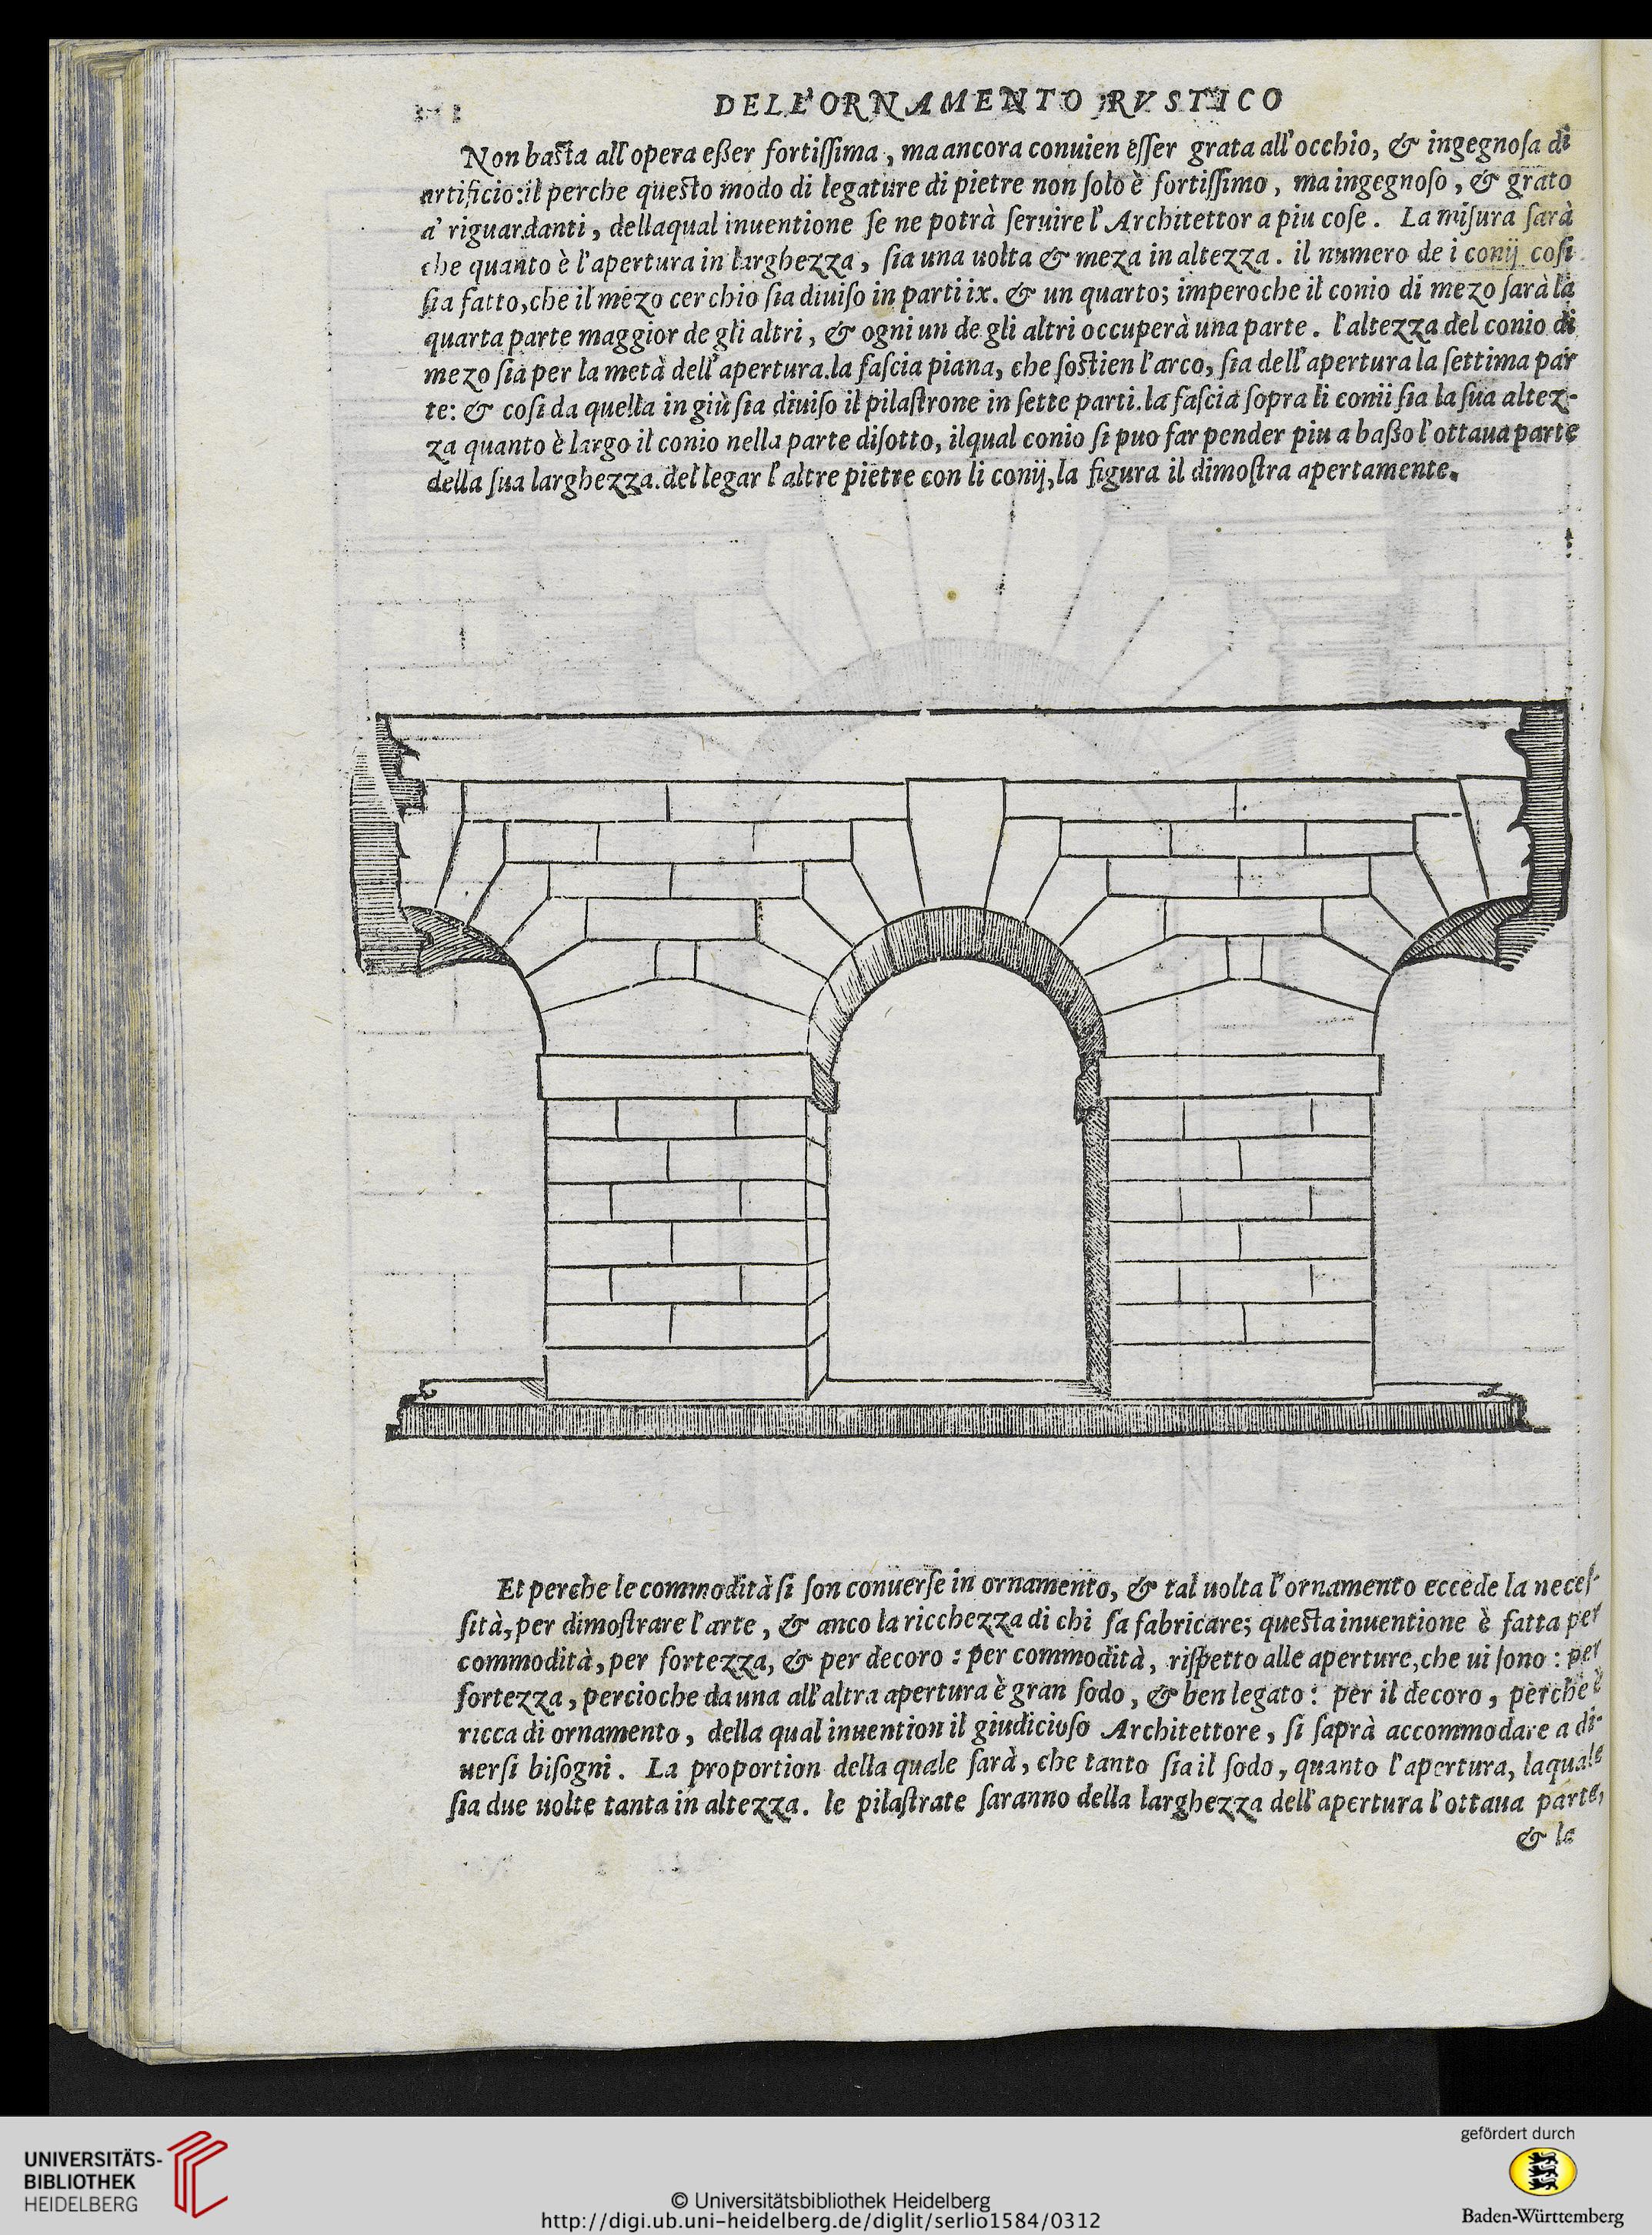 DELL'ORNAMENTO RVSTICO
Non basta all'opera eßer fortiſſima, ma ancora conuien eſſer grata all'occhio, & ingegnoſa di
artificio: il perche questo modo di legature di pietre non ſolo è fortiſſimo, ma ingegnoſo, & grato
a' riguardanti, della qual inuentione ſe ne potrà ſeruire l'Architettor a piu coſe. La miſura ſarà
che quanto è l'apertura in larghezza, ſia una uolta & meza in altezza. il numero de i conij coſi
ſia fatto, che il mezo cerchio ſia diuiſo in parti ix. & un quarto; imperoche il conio di mezo ſarà la
quarta parte maggior de gli altri, & ogni un de gli altri occuperà una parte. l'altezza del conio di
mezo ſia per la metà dell'apertura. la faſcia piana, che ſostien l'arco, ſia dell'apertura la ſettima par
te: & coſi da quella in giù ſia diuiſo il pilaſtrone in ſette parti. la faſcia ſopra li conii ſia la ſua altez-
za quanto è largo il conio nella parte diſotto, ilqual conio ſi puo far pender piu a baßo l'ottaua parte
della ſua larghezza. del legar l'altre pietre con li conij, la figura il dimoſtra apertamente.
Et perche le commodità ſi ſon conuerſe in ornamento, & tal uolta l'ornamento eccede la neceſ-
ſità, per dimoſtrare l'arte, & anco la ricchezza di chi fa fabricare; questa inuentione è fatta per
commodità, per fortezza, & per decoro: per commodità, riſpetto alle aperture, che ui ſono: per
fortezza, percioche da una all'altra apertura è gran ſodo, & ben legato: per il decoro, perche è
ricca di ornamento, della qual inuention il giudicioſo Architettore, ſi ſaprà accommodare a di-
uerſi biſogni. La proportion della quale ſarà, che tanto ſia il ſodo, quanto l'apertura, laquale
ſia due uolte tanta in altezza. le pilaſtrate ſaranno della larghezza dell'apertura l'ottaua parte,
& la
UNIVERSITÄTS-
BIBLIOTHEK
HEIDELBERG
© Universitätsbibliothek Heidelberg
http://digi.ub.uni-heidelberg.de/diglit/serlio1584/0312
gefördert durch
Baden-Württemberg